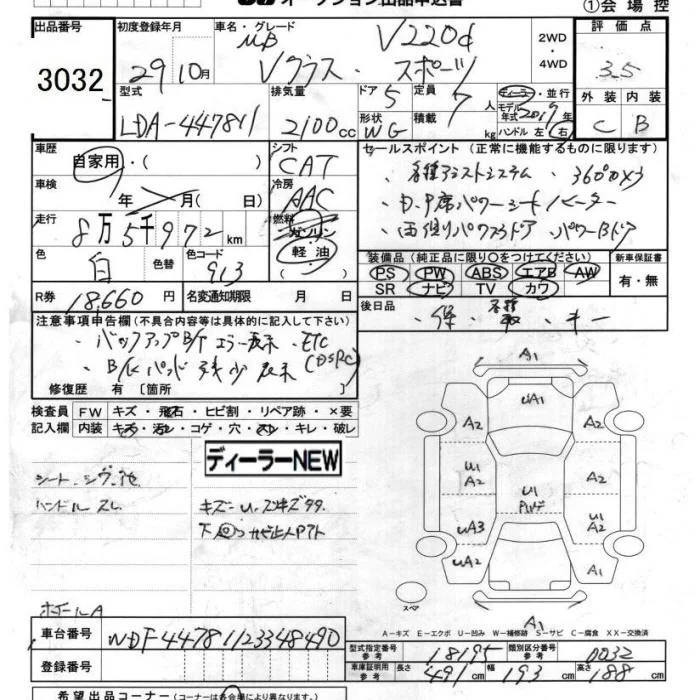 オークション出品申込書 ①会場控
出品番号 初度登録年月 車名・グレード 評価点
3032 29年10月 MB V220d 2WD ・ 4WD 3.5
Vクラス・スポーツ
型式 排気量 ドア 5 定員 7人 ディーラー・並行 外装 内装
LDA-447811 2100cc 形状 WG 積載 kg モデル年式 2017年 C B
ハンドル 左・右
車歴 シフト セールスポイント (正常に機能するものに限ります)
自家用・( ) CAT ・各種アシストシステム ・360°カメラ
車検 年 月( 日) 冷房 AAC ・D.P席パワーシートヒーター
走行 8万5千972km 燃料 ガソリン 軽油 ・両側パワスラドア ・パワーBドア
色 白 色替 色コード 913 装備品 (純正品に限り○をつけてください) 新車保証書
PS PW ABS エアB AW 有・無
SR ナビ TV カワ
R券 18,660円 名変通知期限 月 日 後日品 ・保・各種取・キー
注意事項申告欄 (不具合内容等は具体的に記入して下さい)
・バックアップB/T エラー表示 ・ETC
・B/Kパッド残少表示 (DSRC)
修復歴 有 〔箇所 〕
検査員 FW キズ・飛石・ヒビ割・リペア跡・×要
記入欄 内装 キズ・汚レ・コゲ・穴・スレ・キレ・破レ
ディーラーNEW
シート シワ
ハンドル スレ
ホイールA
A1
UA1
A2 A2
U1 A2 U1
UA3 U1 A2
UA2 A1
スペア A1
A－キズ E－エクボ U－凹み W－補修跡 S－サビ C－腐食 XX－交換済
車台番号 WDF44781123348490
登録番号
型式指定番号 参考 18195 類別区分番号 参考 0032
車庫証明用 参考 長さ 491cm 幅 193cm 高さ 188cm
希望出品コーナー (コーナーは各会場により異なります。)